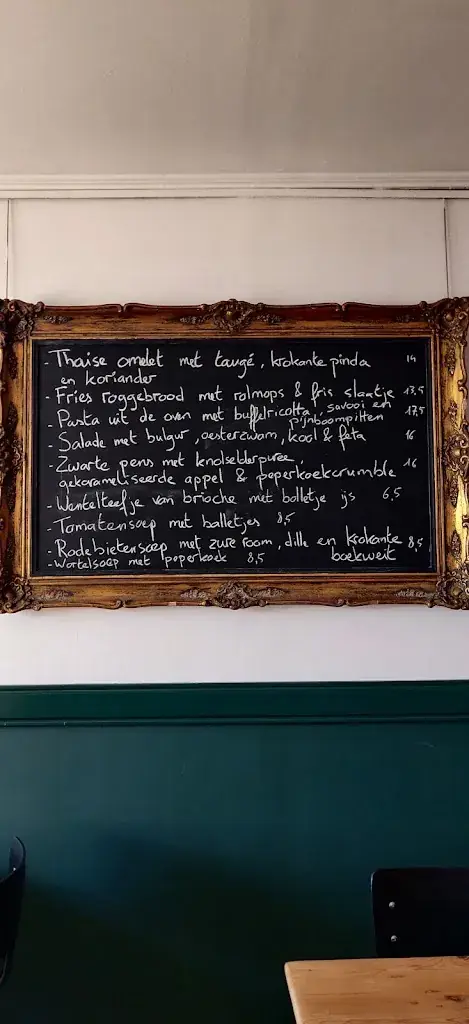 - Thaise omelet met taugé, krokante pinda 14
en koriander
- Fries roggebrood met rolmops & fris slaatje 13,5
- Pasta uit de oven met buffelricotta, savooi en 17,5
pijnboompitten
- Salade met bulgur, oesterzwam, kool & feta 16
- Zwarte pens met knolselderpuree 16
gekarameliseerde appel & peperkoekcrumble
- Wentelteefje van brioche met bolletje ijs 6,5
- Tomatensoep met balletjes 8,5
- Rodebietensoep met zure room, dille en krokante 8,5
boekweit
- Wortelsoep met peperkoek 8,5